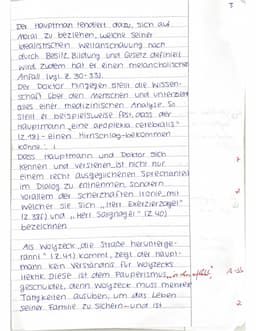 3
Der Hauptmann tendiert dazu, sich auf
Moral zu beziehen, welche seiner
idealistischen Weltanschauung nach
durch Besitz, Bildung und Gesetz definiert
wird. Zudem hat er einen melancholischen
Anfall (vgl. Z. 30-33).
Der Doktor hingegen stellt die Wissen-
schaft über den Menschen und unterzieht
alles einer medizinischen Analyse. So
stellt er beispielsweise fest, dass der
Hauptmann „eine apoplexia cerebralis"
(Z. 18) - einen Hirnschlag - bekommen
könne.
Dass Hauptmann und Doktor sich
kennen und verstehen, ist nicht nur
einem recht ausgeglichenen Sprechanteil
im Dialog zu entnehmen, sondern
vorallem der scherzhaften Ironie, mit
welcher sie sich „Herr Exerzierzagel"
(Z. 38f) und „Herr Sargnagel" (Z. 40)
bezeichnen.
Als Woyzeck „die Straße herunterge-
rannt" (Z. 41) kommt, zeigt der Haupt-
mann kein Verständnis für Woyzecks
Hektik. Diese ist dem Pauperismus
geschuldet, denn Woyzeck muss mehrere
Tätigkeiten ausüben, um das Leben
seiner Familie zu sichern - und ist
2